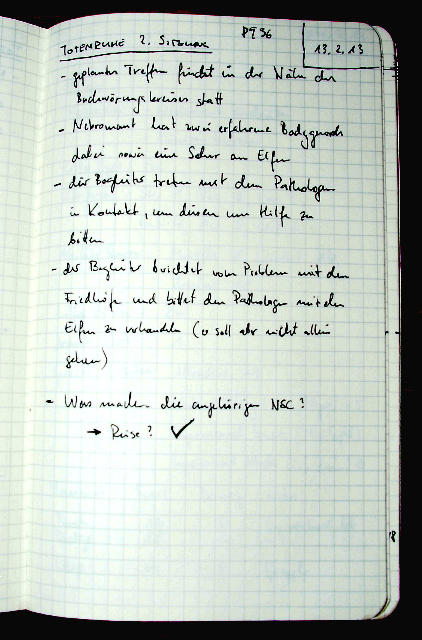 TOTENRUHE 2. SITZUNG
13.2.13
- geplantes Treffen findet in der Nähe des
Beschwörungskreises statt
- Nekromant hat zwei erfahrene Bodyguards
dabei sowie eine Schar an Elfen
- die Begleiter treten mit dem Pathologen
in Kontakt, um diesen um Hilfe zu
bitten
- der Begleiter berichtet vom Problem mit den
Friedhöfe und bittet den Pathologen mit den
Elfen zu verhandeln (er soll aber nicht allein
gehen)
- Was machen die angehörigen NSC?
→ Reise? ✓